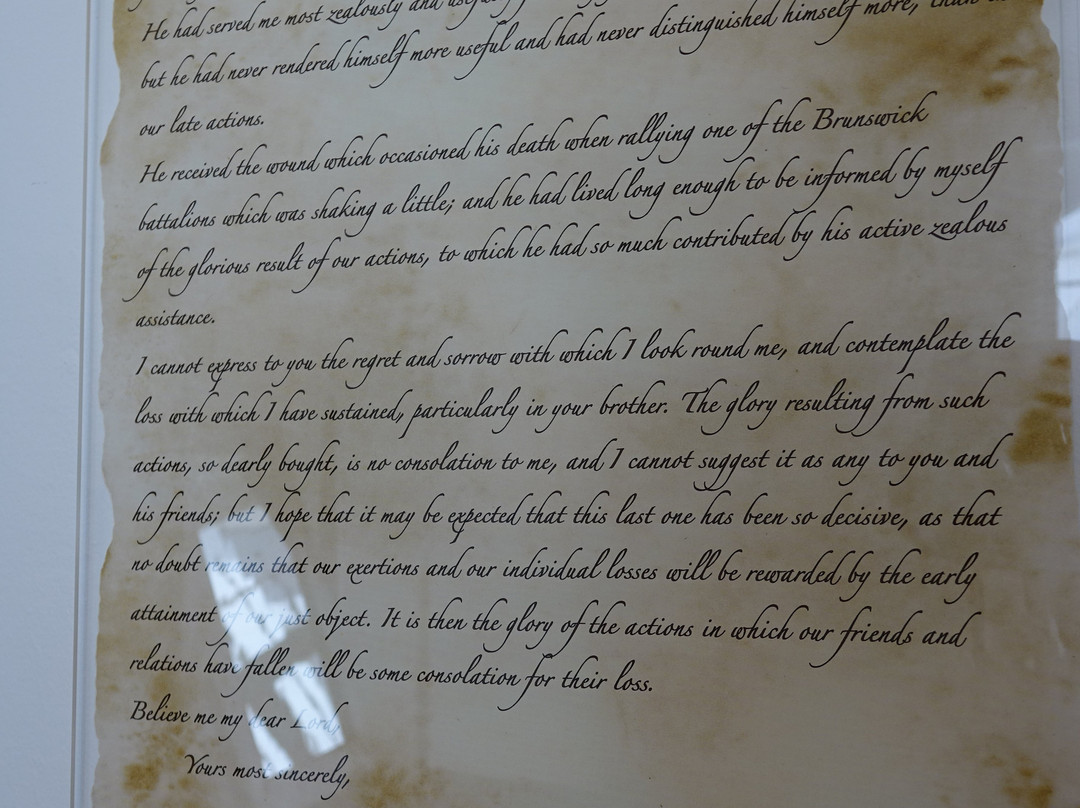 He had served me most zealously and
but he had never rendered himself more useful and had never distinguished himself more, than
our late actions.
He received the wound which occasioned his death when rallying one of the Brunswick
battalions which was shaking a little; and he had lived long enough to be informed by myself
of the glorious result of our actions, to which he had so much contributed by his active zealous
assistance.
I cannot express to you the regret and sorrow with which I look round me, and contemplate the
loss with which I have sustained, particularly in your brother. The glory resulting from such
actions, so dearly bought, is no consolation to me, and I cannot suggest it as any to you and
his friends; but I hope that it may be expected that this last one has been so decisive, as that
no doubt remains that our exertions and our individual losses will be rewarded by the early
attainment of our just object. It is then the glory of the actions in which our friends and
relations have fallen will be some consolation for their loss.
Believe me my dear Lord,
Yours most sincerely,